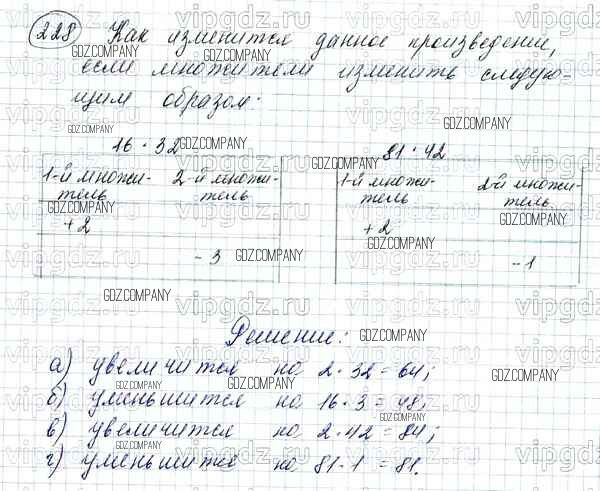 228) Как изменится данное произведение,
если множители изменить следую-
щим образом.
16 · 32
81 · 42
1-й множи-
тель
2-й множи-
тель
+2
-3
1-й множи-
тель
2-й множи-
тель
+2
-1
Решение:
а) увеличится на 2·32=64;
б) уменьшится на 16·3=48;
в) увеличится на 2·42=84;
г) уменьшится на 81·1=81.
vipgdz.ru
GDZ.COMPANY